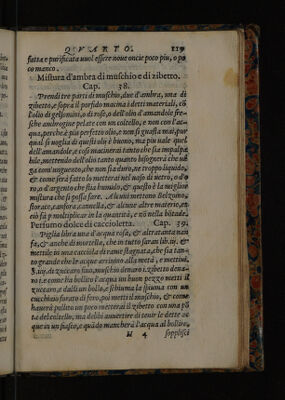 QVARTO. 119
fatta e purificata vuol essere nove oncie poco piu, o po
co manco.
Mistura d'ambra di muschio e di zibetto.
Cap. 38.
Prendi tre parti di muschio, due d'ambra, una di
zibetto, e sopra il porfido macina i detti materiali, cō
l'olio di gelsomini, o di rose, o dell'olio d'amandole fre-
sche ambrogine pelate con un coltello, e non con l'ac-
qua, perche è piu perfetto olio, e non si guasta mai, pur
qual si voglia di questi olii è buono, ma piu vale quel
dell'amandole, e cosi macinerai tanto che sia impalpa
bile, mettendo dell'olio tanto quanto bisognerà che ue
ga com'unguento, che non sia duro, ne troppo liquido,
& come sarà fatto lo metterai nel vaso di vetro, o d'o
ro, o d'argento che stia humido, & questo è la miglior
mistura che si possa fare. Alcuni mettono Belzuino,
storace, canfora, cannella, & alcune altre materie, et
ciò fā p multiplicar in la quantità, e nō nella bōtade.
Perfumo dolce di cazzoletta. Cap. 39.
Piglia libra una d'acqua rosa, & altra tanta nan
fa, & anche di mortella, che in tutto saran lib. iij. &
mettile in una cazzola di rame stagnata, che sia tan-
to grande che le acque arrivino alla metà, e mettivi
di zuccaro fino, muschio denaro i. zibetto dena-
ro i. e come ha bollito l'acqua un buon pezzo metti il
zuccaro, e dalli un bollo, e schiuma la spiuma con un
cucchiaio forato di ferro, poi metti il muschio, & come
haverà pulito un poco metterai il zibetto con una pō
ta del coltello, ma debbi avvertire di tener le dette ac
que in un fiasco, e quādo mancherà l'acqua al bollire,
H 4 supplisci